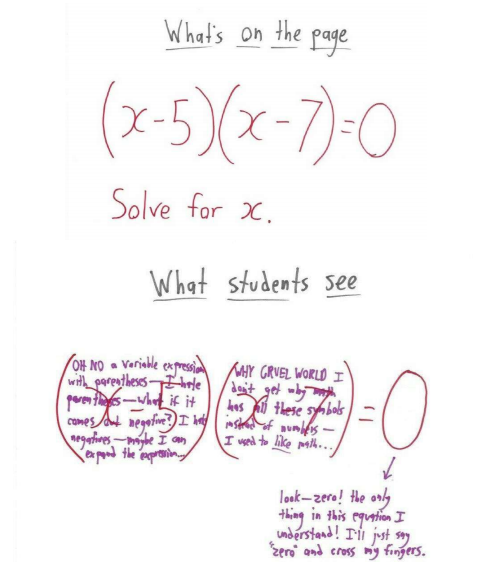 What's on the page
(x-5)(x-7)=0
Solve for x.
What students see
(OH NO a variable expression
with parentheses—I hate
parentheses—what if it
comes out negative? I hate
negatives—maybe I can
expand the expression...)
x - 5
(WHY CRUEL WORLD I
don't get why math
has all these symbols
instead of numbers—
I used to like math...)
x 7
= 0
look—zero! the only
thing in this equation I
understand! I'll just say
"zero" and cross my fingers.